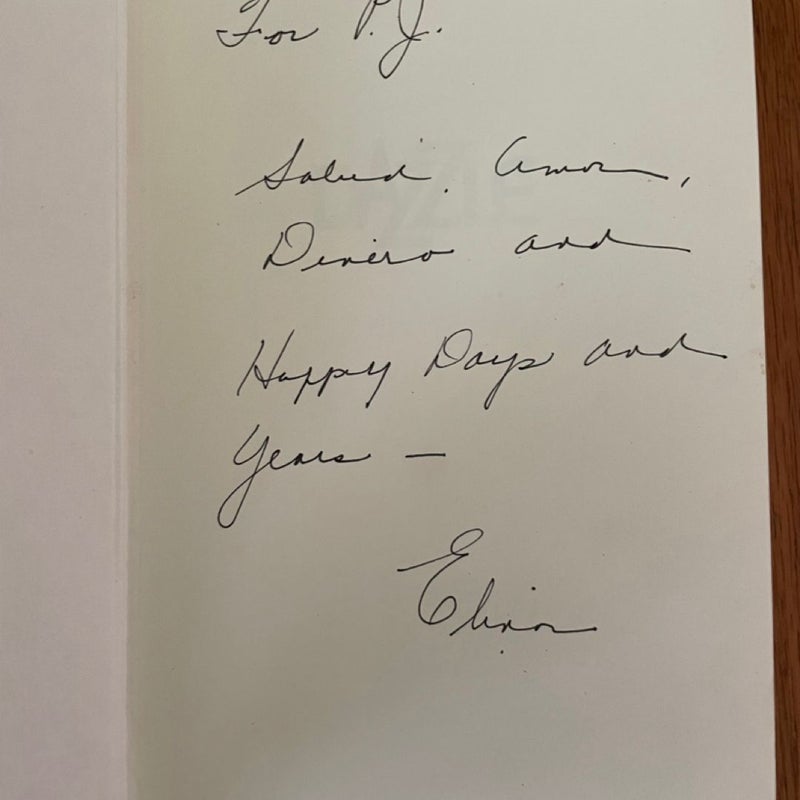 For P.J.
Salud, Amor,
Dinero and
Happy Days and
Years —
Elinor